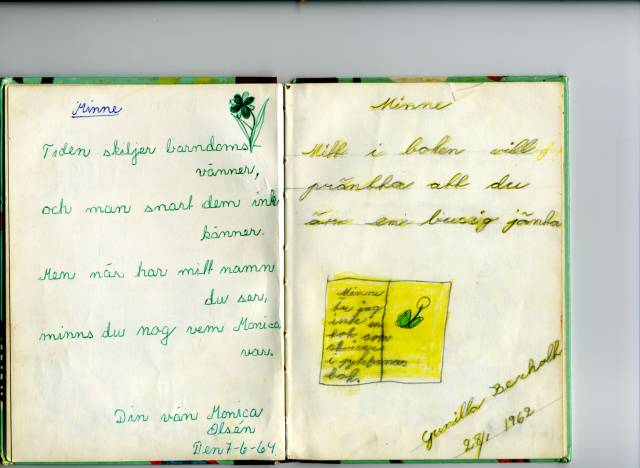 Minne
Tiden skiljer barndoms-
vänner,
och man snart dem ink
känner.
Men när har mitt namn
du ser,
minns du nog vem Monica
var.
Din vän Monica
Olsén
Den 7-6-64
Minne
Mitt i boken vill j
präntta att du
är en bussig jänta
Minne
är jag
inte en
bok som
i
bak.
Gunilla
28/1 1962